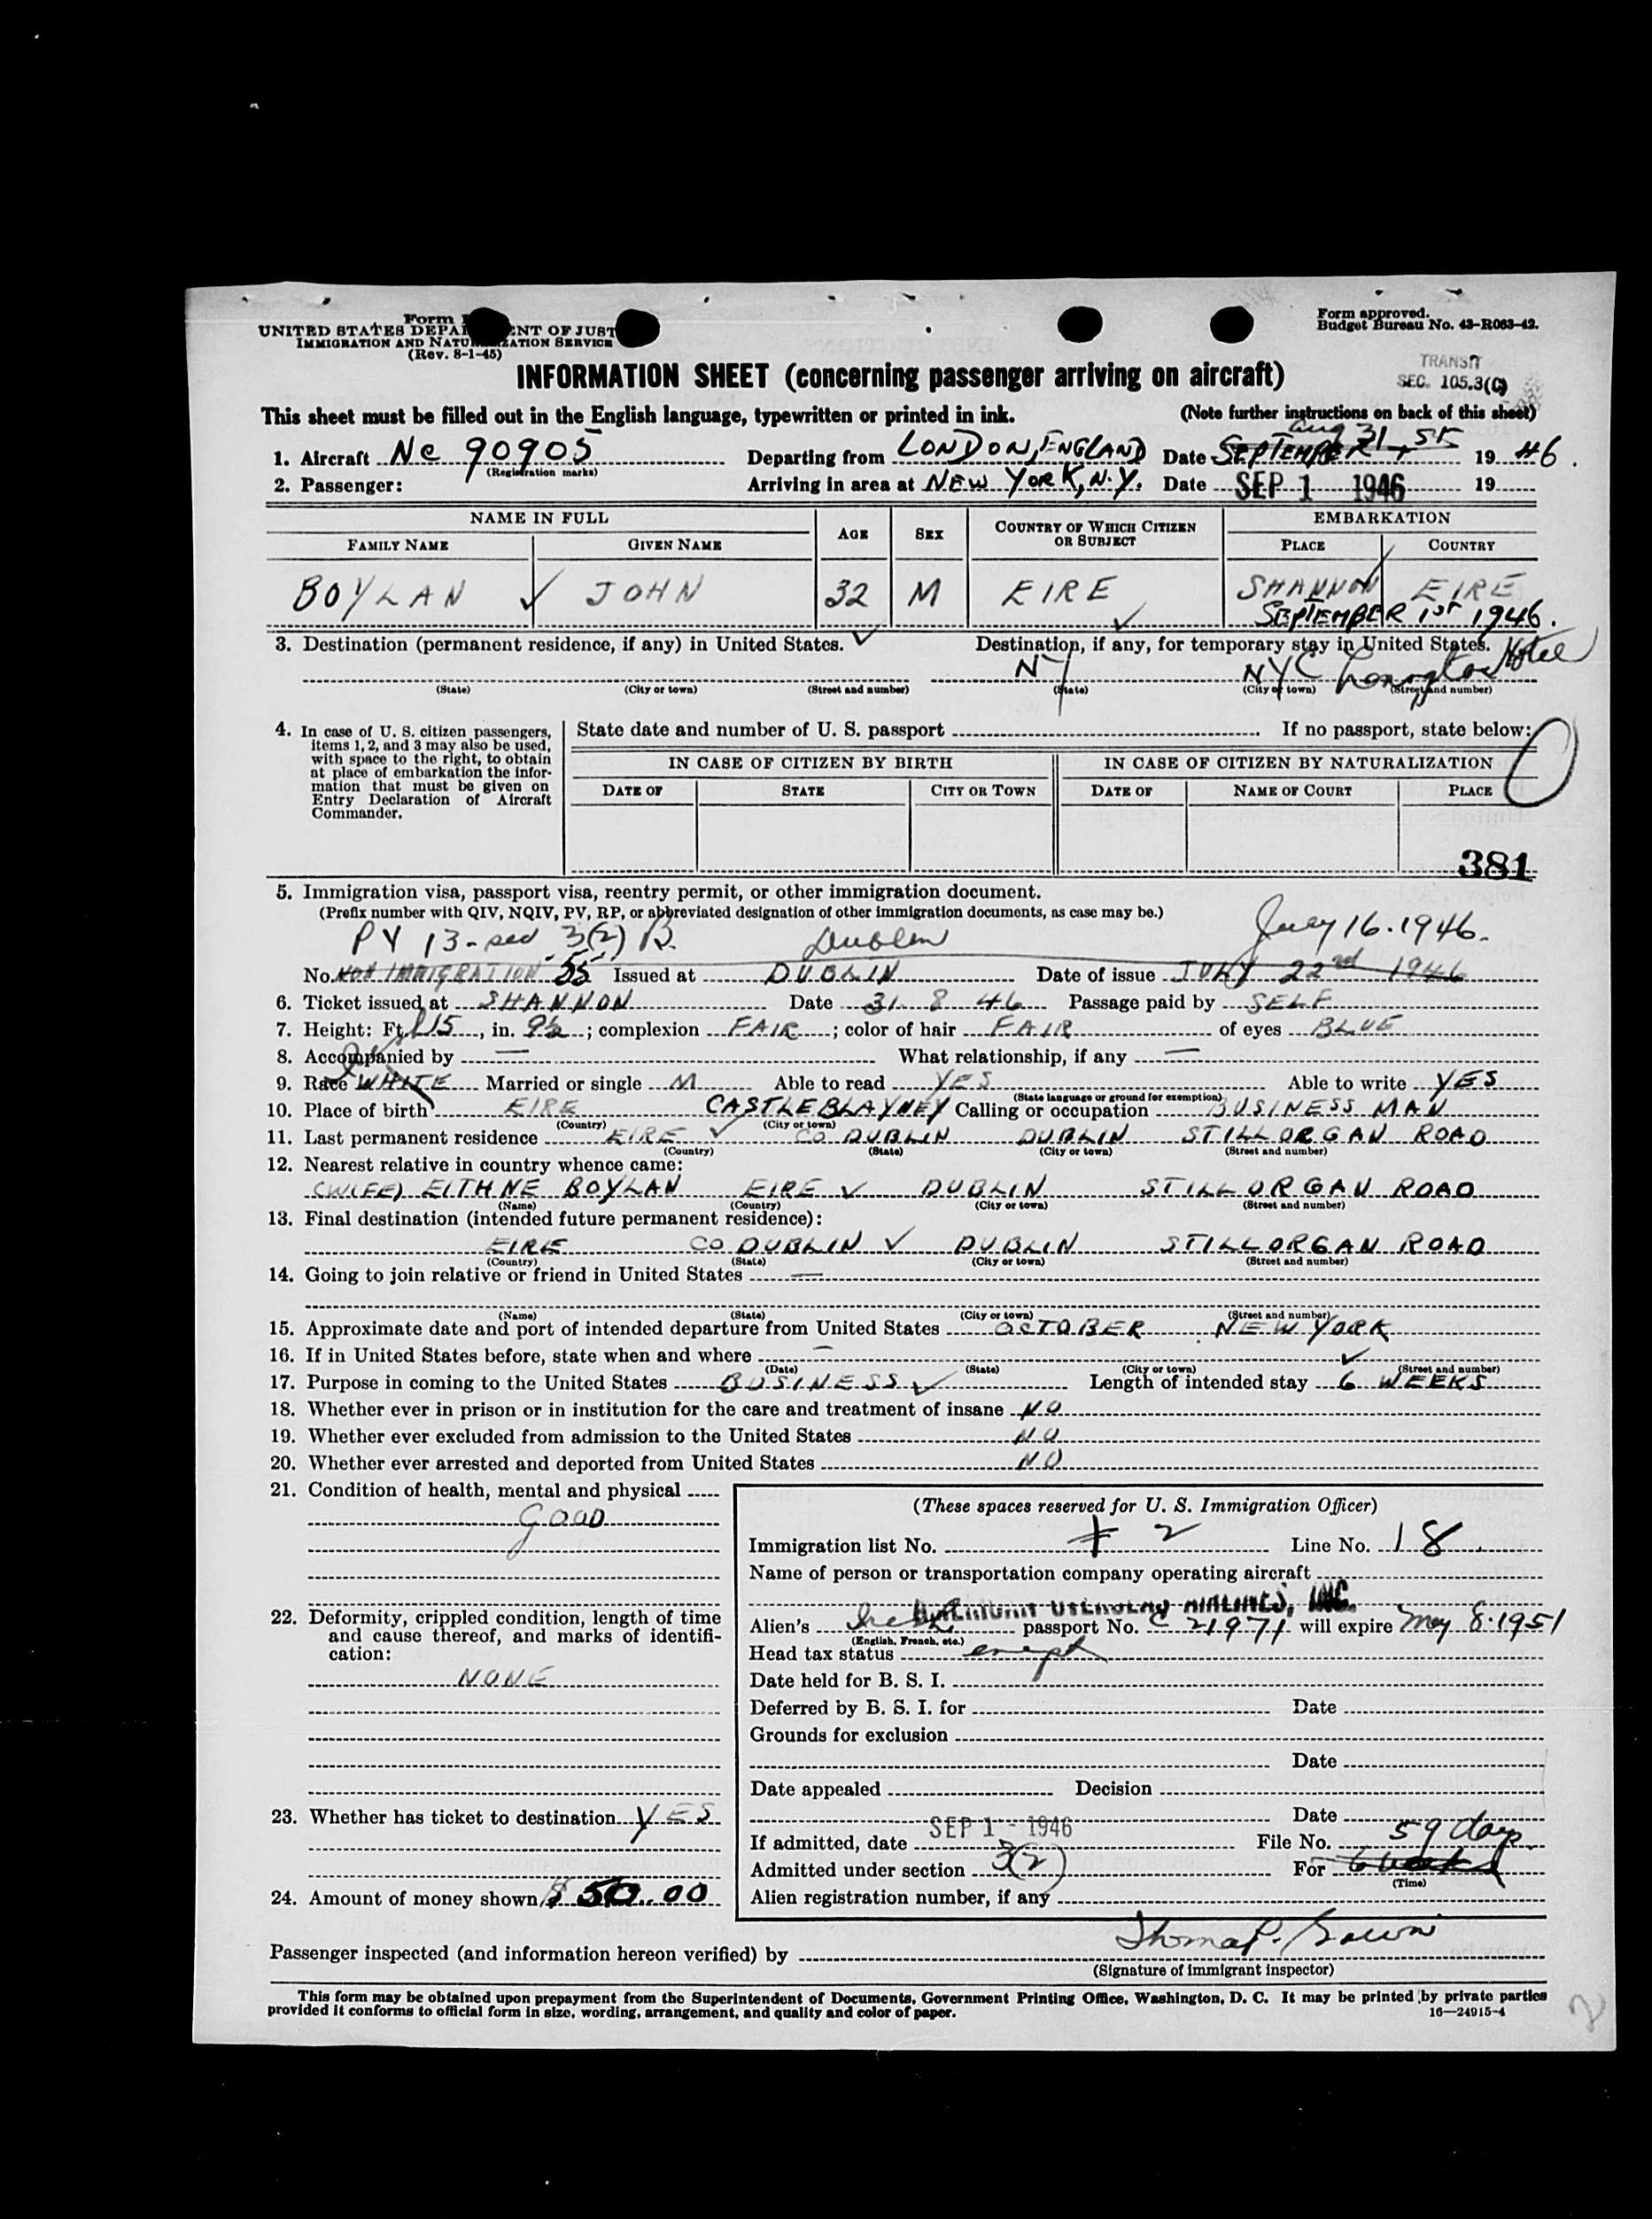 Form
UNITED STATES DEPA NT OF JUST
IMMIGRATION AND NATU IZATION SERVICE
(Rev. 8-1-45)
Form approved.
Budget Bureau No. 43-R063-42.
INFORMATION SHEET (concerning passenger arriving on aircraft)
TRANSIT
SEC. 105.3(C)
This sheet must be filled out in the English language, typewritten or printed in ink. (Note further instructions on back of this sheet)
Aug 31, ST
1. Aircraft Nc 90905 Departing from LONDON, ENGLAND Date SEPTEMBER 1946.
(Registration marks)
2. Passenger: Arriving in area at NEW YORK, N.Y. Date SEP 1 1946 19
NAME IN FULL AGE SEX COUNTRY OF WHICH CITIZEN OR SUBJECT EMBARKATION
FAMILY NAME GIVEN NAME PLACE COUNTRY
BOYLAN JOHN 32 M EIRE SHANNON EIRE
SEPTEMBER 1ST 1946.
3. Destination (permanent residence, if any) in United States. Destination, if any, for temporary stay in United States.
NY NYC Hotel
(State) (City or town) (Street and number) (State) (City or town) (Street and number)
4. In case of U. S. citizen passengers, items 1, 2, and 3 may also be used, with space to the right, to obtain at place of embarkation the information that must be given on Entry Declaration of Aircraft Commander.
State date and number of U. S. passport If no passport, state below:
IN CASE OF CITIZEN BY BIRTH IN CASE OF CITIZEN BY NATURALIZATION
DATE OF STATE CITY OR TOWN DATE OF NAME OF COURT PLACE
381
5. Immigration visa, passport visa, reentry permit, or other immigration document.
(Prefix number with QIV, NQIV, PV, RP, or abbreviated designation of other immigration documents, as case may be.)
PV 13-sec 3(2) B. Dublin July 16.1946.
No. NON IMMIGRATION 55 Issued at DUBLIN Date of issue JULY 22nd 1946
6. Ticket issued at SHANNON Date 31. 8 46 Passage paid by SELF
7. Height: Ft. 5, in. 9½; complexion FAIR; color of hair FAIR of eyes BLUE
8. Accompanied by — What relationship, if any —
9. Race WHITE Married or single M Able to read YES Able to write YES
(State language or ground for exemption)
10. Place of birth EIRE CASTLEBLAYNEY Calling or occupation BUSINESS MAN
(Country) (City or town)
11. Last permanent residence EIRE CO DUBLIN DUBLIN STILLORGAN ROAD
(Country) (State) (City or town) (Street and number)
12. Nearest relative in country whence came:
(WIFE) EITHNE BOYLAN EIRE DUBLIN STILLORGAN ROAD
(Name) (Country) (City or town) (Street and number)
13. Final destination (intended future permanent residence):
EIRE CO DUBLIN DUBLIN STILLORGAN ROAD
(Country) (State) (City or town) (Street and number)
14. Going to join relative or friend in United States —
(Name) (State) (City or town) (Street and number)
15. Approximate date and port of intended departure from United States OCTOBER NEW YORK
16. If in United States before, state when and where —
(Date) (State) (City or town) (Street and number)
17. Purpose in coming to the United States BUSINESS Length of intended stay 6 WEEKS
18. Whether ever in prison or in institution for the care and treatment of insane NO
19. Whether ever excluded from admission to the United States NO
20. Whether ever arrested and deported from United States NO
21. Condition of health, mental and physical
GOOD
22. Deformity, crippled condition, length of time and cause thereof, and marks of identification:
NONE
23. Whether has ticket to destination YES
24. Amount of money shown $ 50.00
(These spaces reserved for U. S. Immigration Officer)
Immigration list No. 2 Line No. 18
Name of person or transportation company operating aircraft
AMERICAN OVERSEAS AIRLINES, INC.
Alien's Irish passport No. C 21971 will expire May 8.1951
(English, French, etc.)
Head tax status exempt
Date held for B. S. I.
Deferred by B. S. I. for Date
Grounds for exclusion
Date
Date appealed Decision
Date
If admitted, date SEP 1 - 1946 File No.
59 days
Admitted under section 3(2) For 6 weeks
(Time)
Alien registration number, if any
Passenger inspected (and information hereon verified) by
(Signature of immigrant inspector)
This form may be obtained upon prepayment from the Superintendent of Documents, Government Printing Office, Washington, D. C. It may be printed by private parties
provided it conforms to official form in size, wording, arrangement, and quality and color of paper. 16—24915-4
2